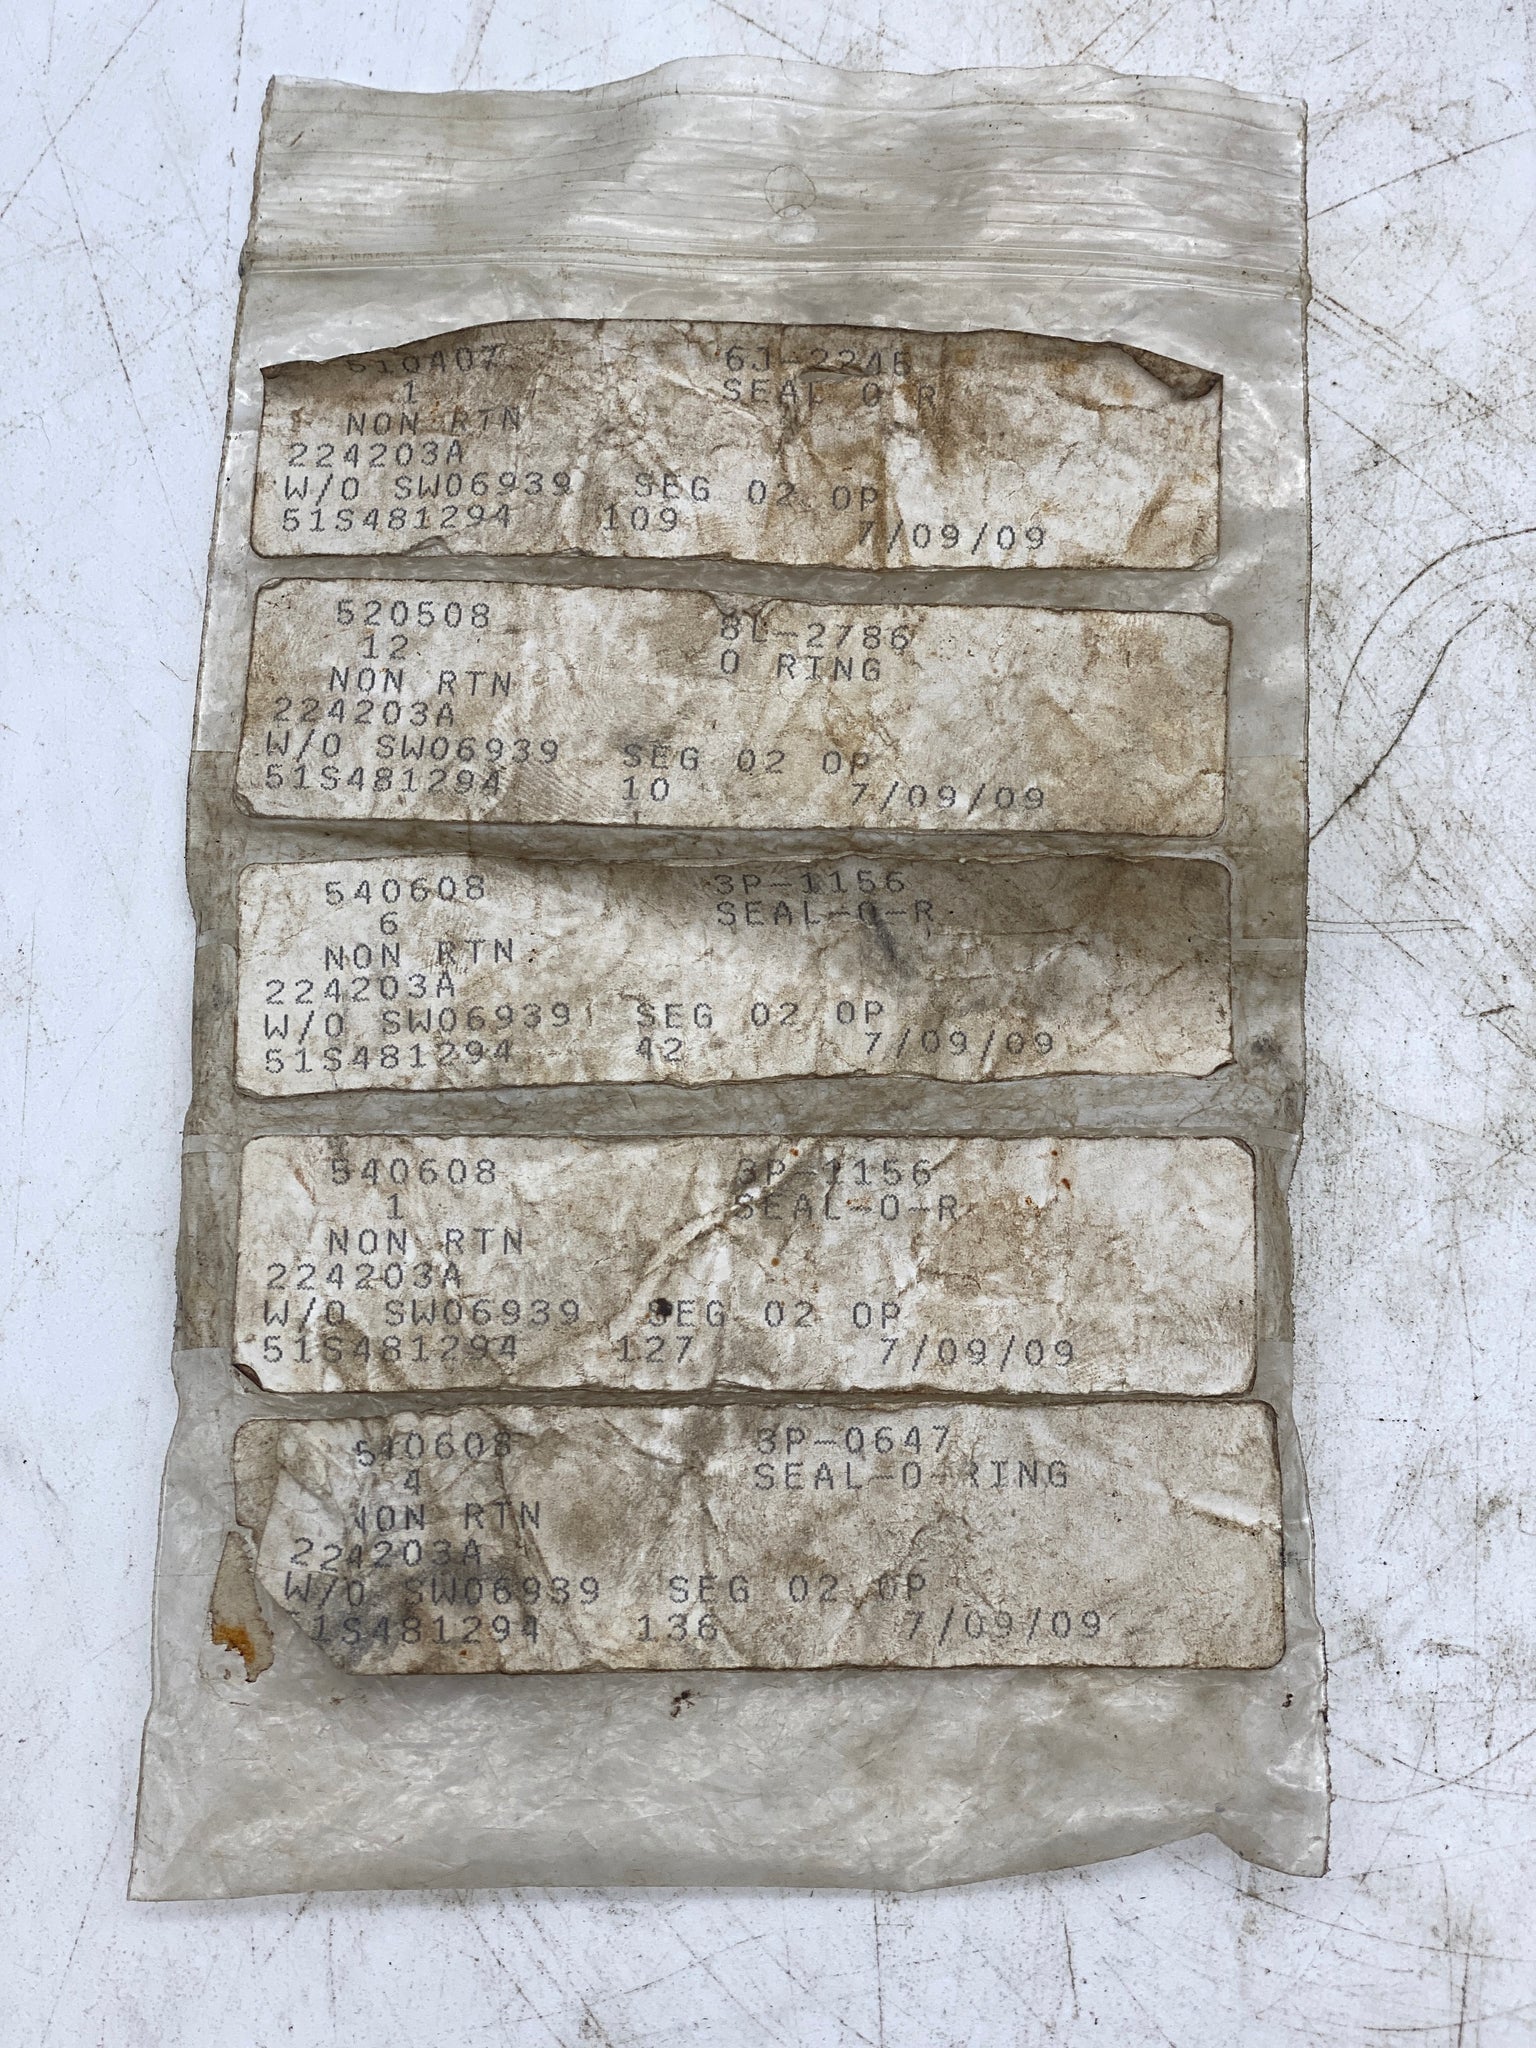 510A07 6J-2245
1 SEAL O R
NON RTN
224203A
W/O SW06939 SEG 02 OP
51S481294 109 7/09/09
520508 8L-2786
12 O RING
NON RTN
224203A
W/O SW06939 SEG 02 OP
51S481294 10 7/09/09
540608 3P-1156
6 SEAL-O-R
NON RTN
224203A
W/O SW06939 SEG 02 OP
51S481294 42 7/09/09
540608 3P-1156
1 SEAL-O-R
NON RTN
224203A
W/O SW06939 SEG 02 OP
51S481294 127 7/09/09
540608 3P-0647
4 SEAL-O-RING
NON RTN
224203A
W/O SW06939 SEG 02 OP
51S481294 136 7/09/09